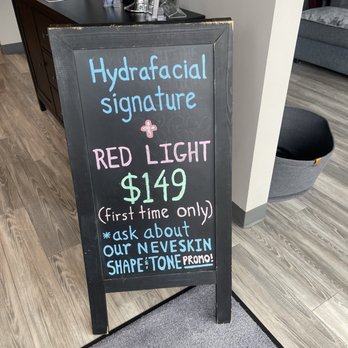 Hydrafacial
signature
+
RED LIGHT
$149
(first time only)
*ask about
OUR NEVESKIN
SHAPE & TONE PROMO!